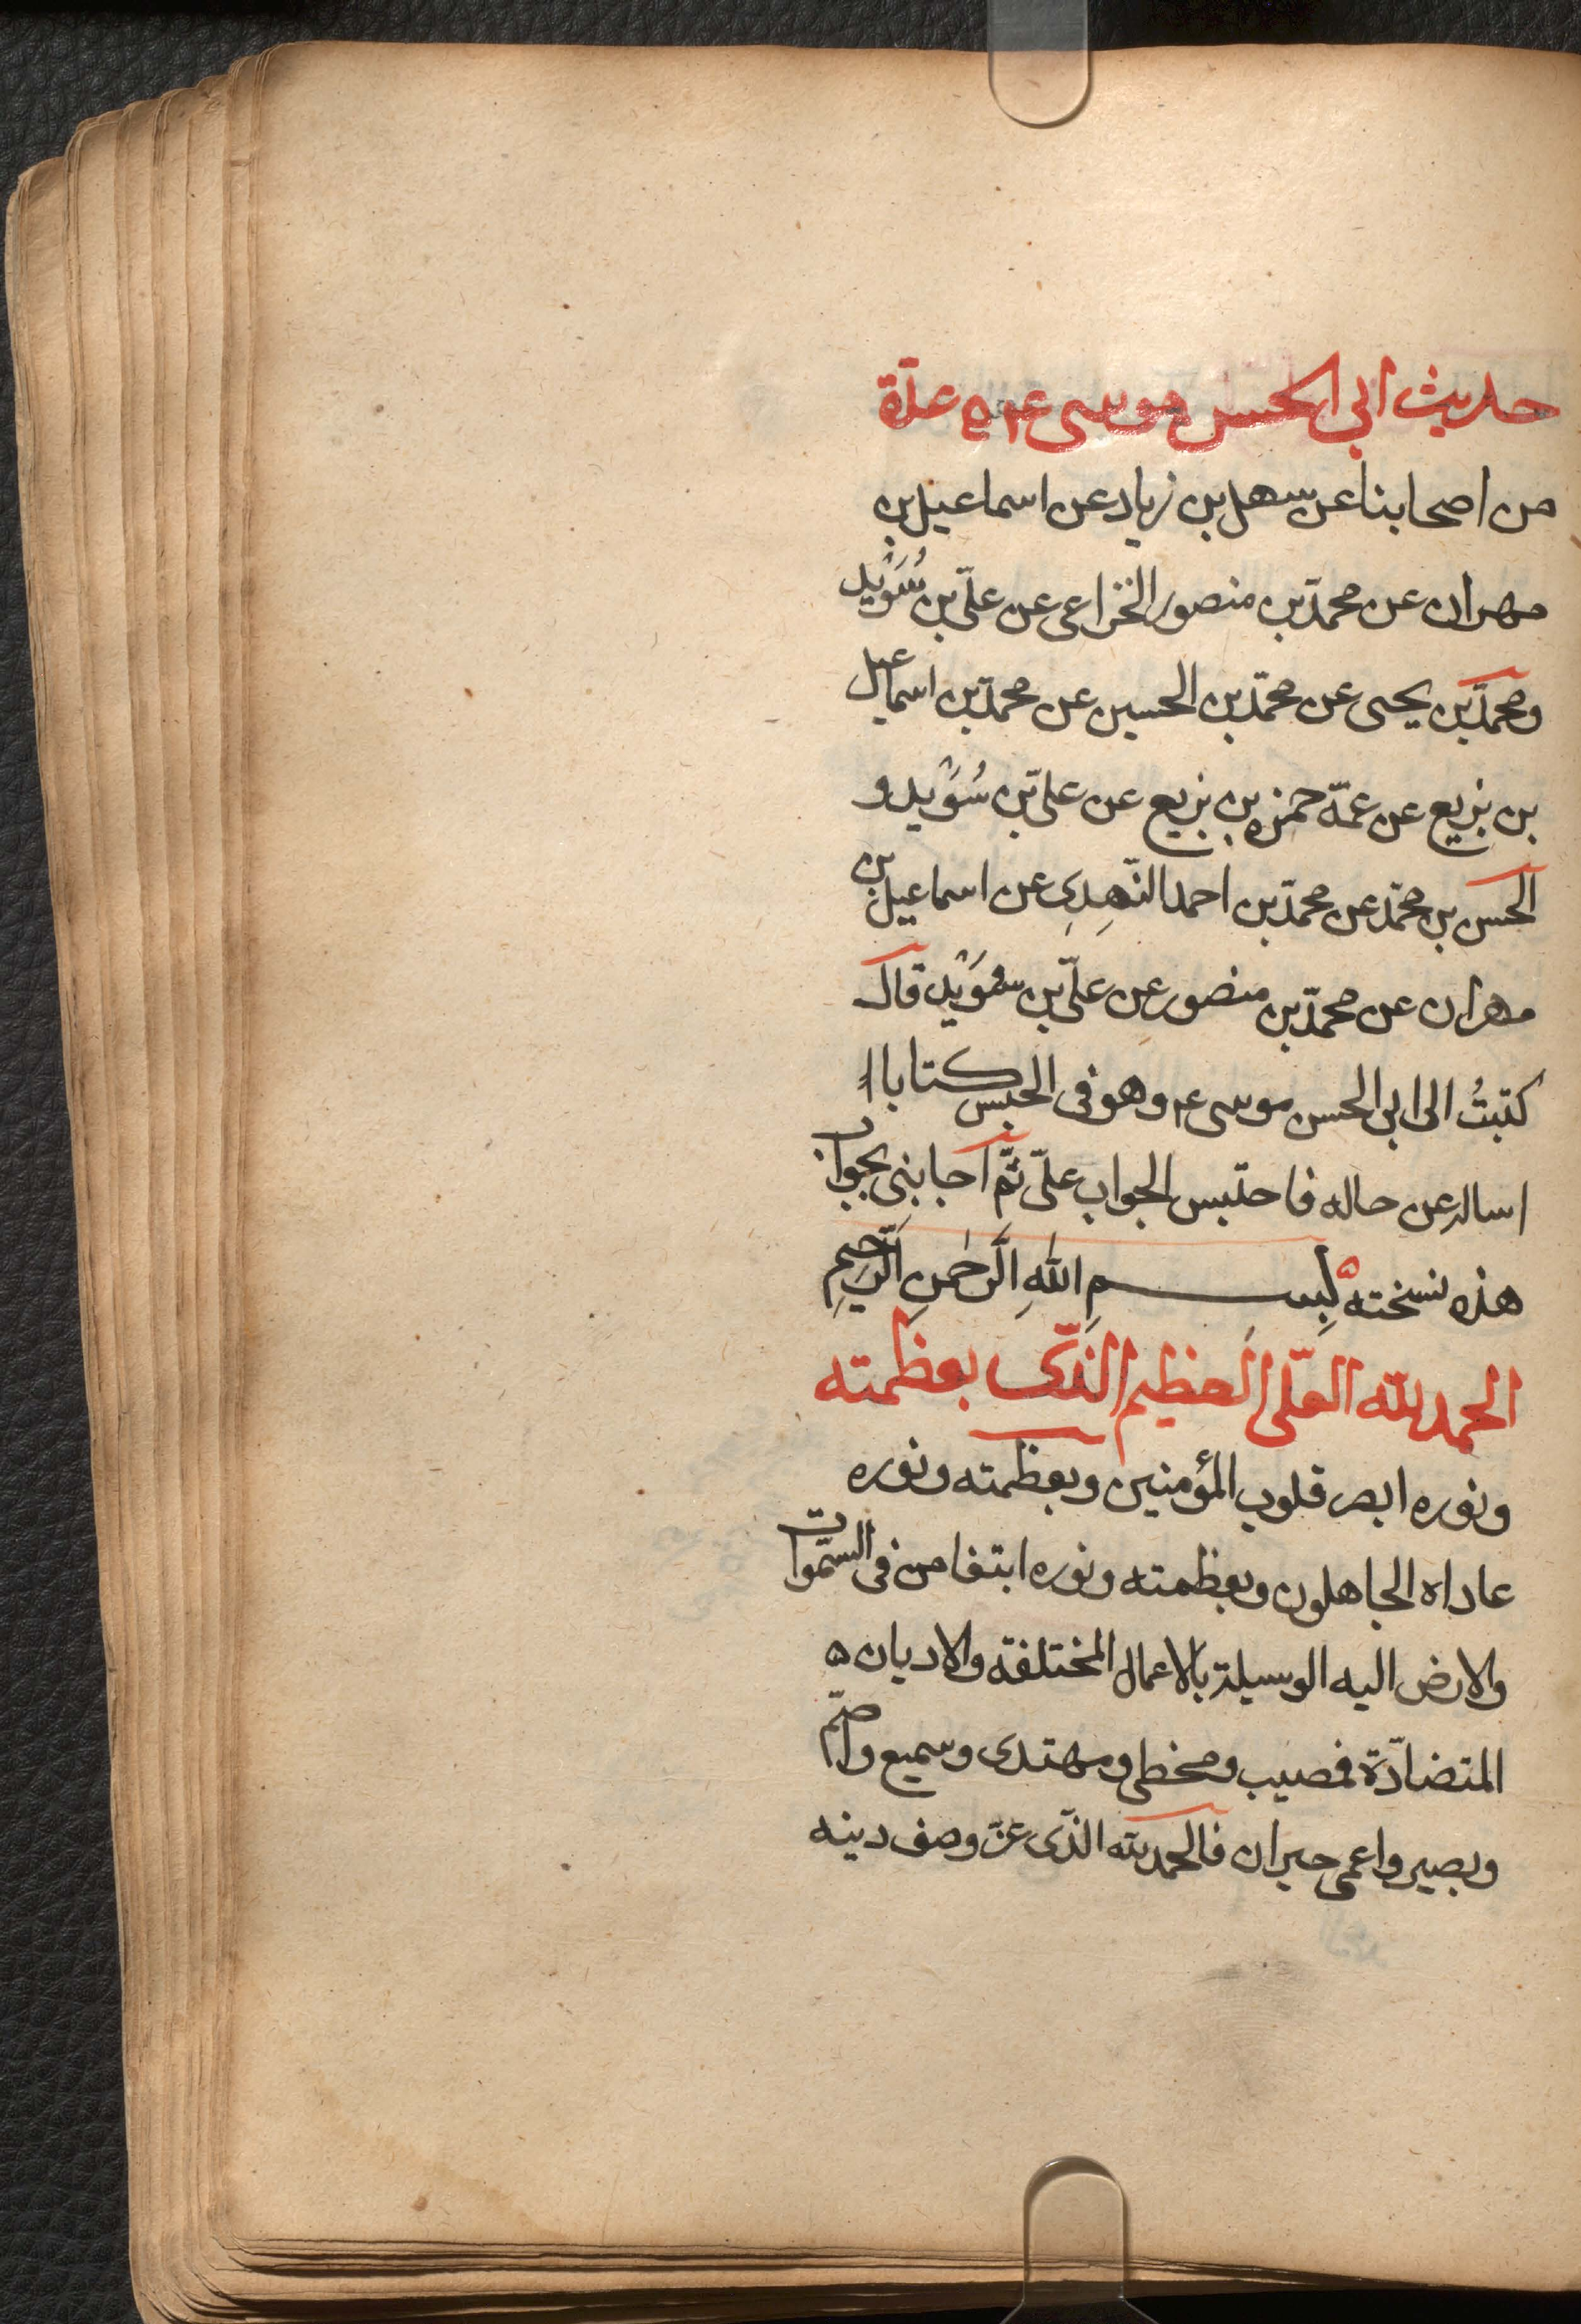 حديث ابي الحسن موسى ع م ه عدّة
من اصحابنا عن سهل بن زياد عن اسماعيل بن
مهران عن محمّد بن منصور الخزاعى عن علىّ بن سُوَيْد
ومحمّد بن يحيى عن محمّد بن الحسين عن محمّد بن اسماعيل
بن بزيع عن عمّه حمزه بن بزيع عن علىّ بن سُوَيْد و
الحسن بن محمّد عن محمّد بن احمد النّهِدِى عن اسماعيل بن
مهران عن محمّد بن منصور عن علىّ بن سُوَيْد قال
كتبتُ الى ابى الحسن موسى ع م وهو فى الحبس كتابا
اساله عن حاله فاحتبس الجواب علىّ ثمّ اجابنى بجواب
هذه نسخته ه بِسمِ اللهِ الَّرحْمنِ الَّرحِيمِ
الحمد لله العلّى العظيم الذّى بعظمته
ونوره ابصر قلوب المؤمنين وبعظمته ونوره
عاداه الجاهلون وبعظمته ونوره ابتغا من فى السّموات
والارض اليه الوسيلة بالاعمال المختلفة والاديان ه
المتضادّة فمصيب ومخطى ومهتدى وسميع واصمّ
وبصير واعمى حيران فالحمد لله الذّى عزّ وصف دينه